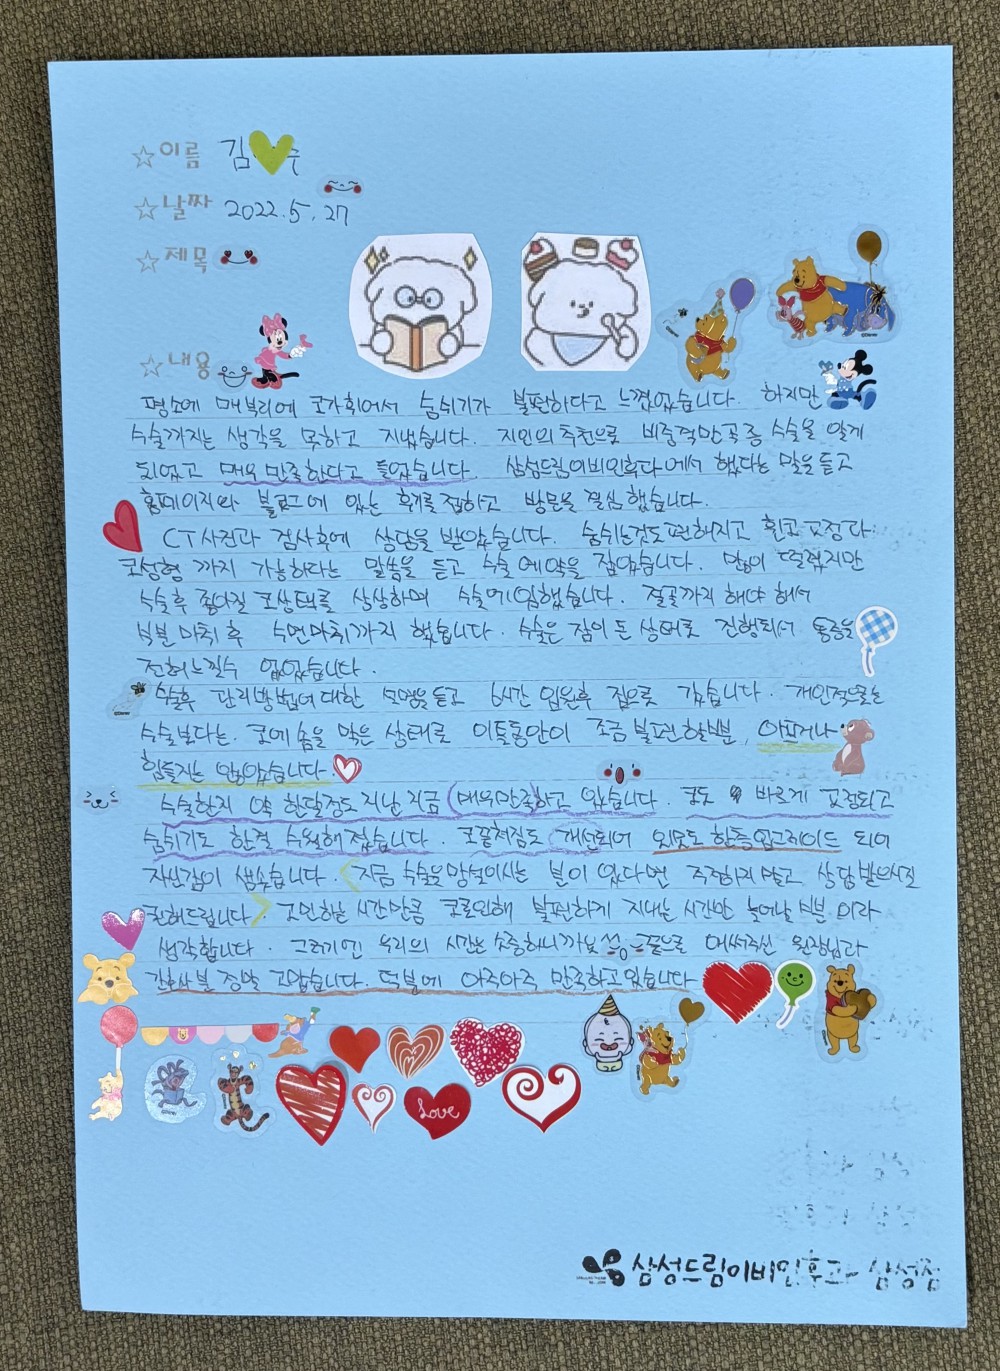 ☆이름 김 수
☆날짜 2022.5.27
☆제목
☆내용
평소에 매부리에 코가휘어서 숨쉬기가 불편하다고 느꼈었습니다. 하지만
수술까지는 생각을 못하고 지냈습니다. 지인의 추천으로 비중격만곡증 수술을 알게
되었고 매우 만족한다고 들었습니다. 삼성드림이비인후과에서 했다는 말을 듣고
홈페이지와 블로그에 있는 후기를 접하고 방문을 결심 했습니다.
CT사진과 검사후에 상담을 받았습니다. 숨쉬는것도 편해지고 휜코 교정과
코성형 까지 가능하다는 말씀을 듣고 수술 예약을 잡았습니다. 많이 떨렸지만
수술후 좋아질 코상태를 상상하며 수술에 임했습니다. 절골까지 해야 해서
부분 마취 후 수면마취까지 했습니다. 수술은 잠이 든 상태로 진행되서 통증을
전혀느낄수 없었습니다.
수술후 관리방법에 대한 설명을 듣고 6시간 입원후 집으로 갔습니다. 개인적으로는
수술보다는 코에 솜을 막은 상태로 이틀동안이 조금 불편할뿐, 아프거나
힘들지는 않았습니다.
수술한지 약 한달정도 지난 지금 (매우만족)하고 있습니다. 코도 바르게 교정되고
숨쉬기도 한결 수월해 졌습니다. 코끝처짐도 개선되어 외모도 한층업그레이드 되어
자신감이 생겼습니다. <지금 수술을 망설이시는 분이 있다면 주저하지 말고 상담 받으시길
권해드립니다> 고민하는 시간만큼 코로인해 불편하게 지내는 시간만 늘어날 뿐 이라
생각합니다. 그러기엔 우리의 시간은 소중하니까요 끝으로 애써주신 원장님과
간호사분 정말 고맙습니다. 덕분에 아주아주 만족하고 있습니다
Love
삼성드림이비인후과 삼성점